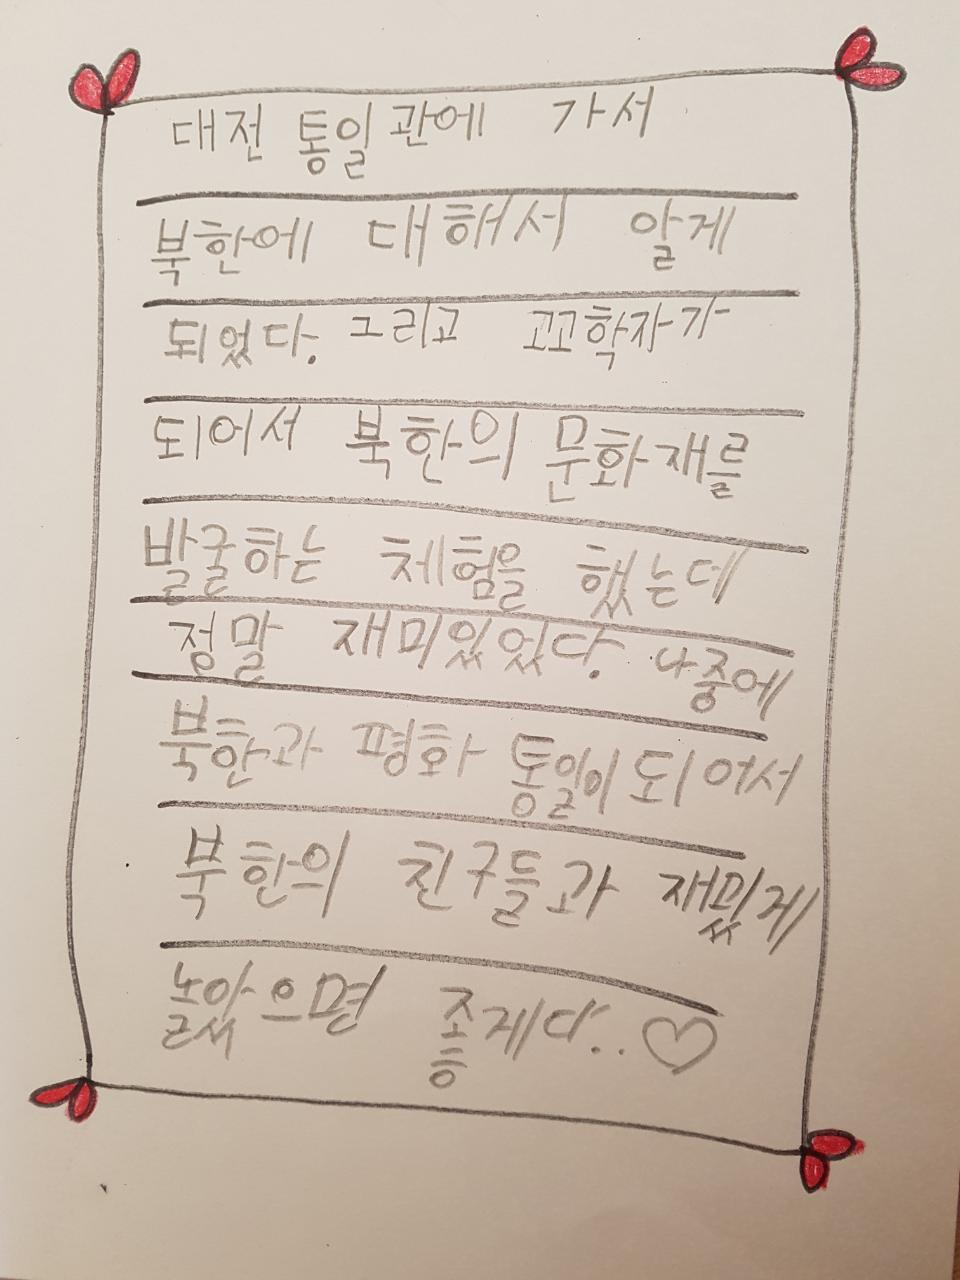 대전 통일관에 가서
북한에 대해서 알게
되었다. 그리고 고고학자가
되어서 북한의 문화재를
발굴하는 체험을 했는데
정말 재미있었다. 나중에
북한과 평화 통일이 되어서
북한의 친구들과 재밌게
놀았으면 좋게다..♡